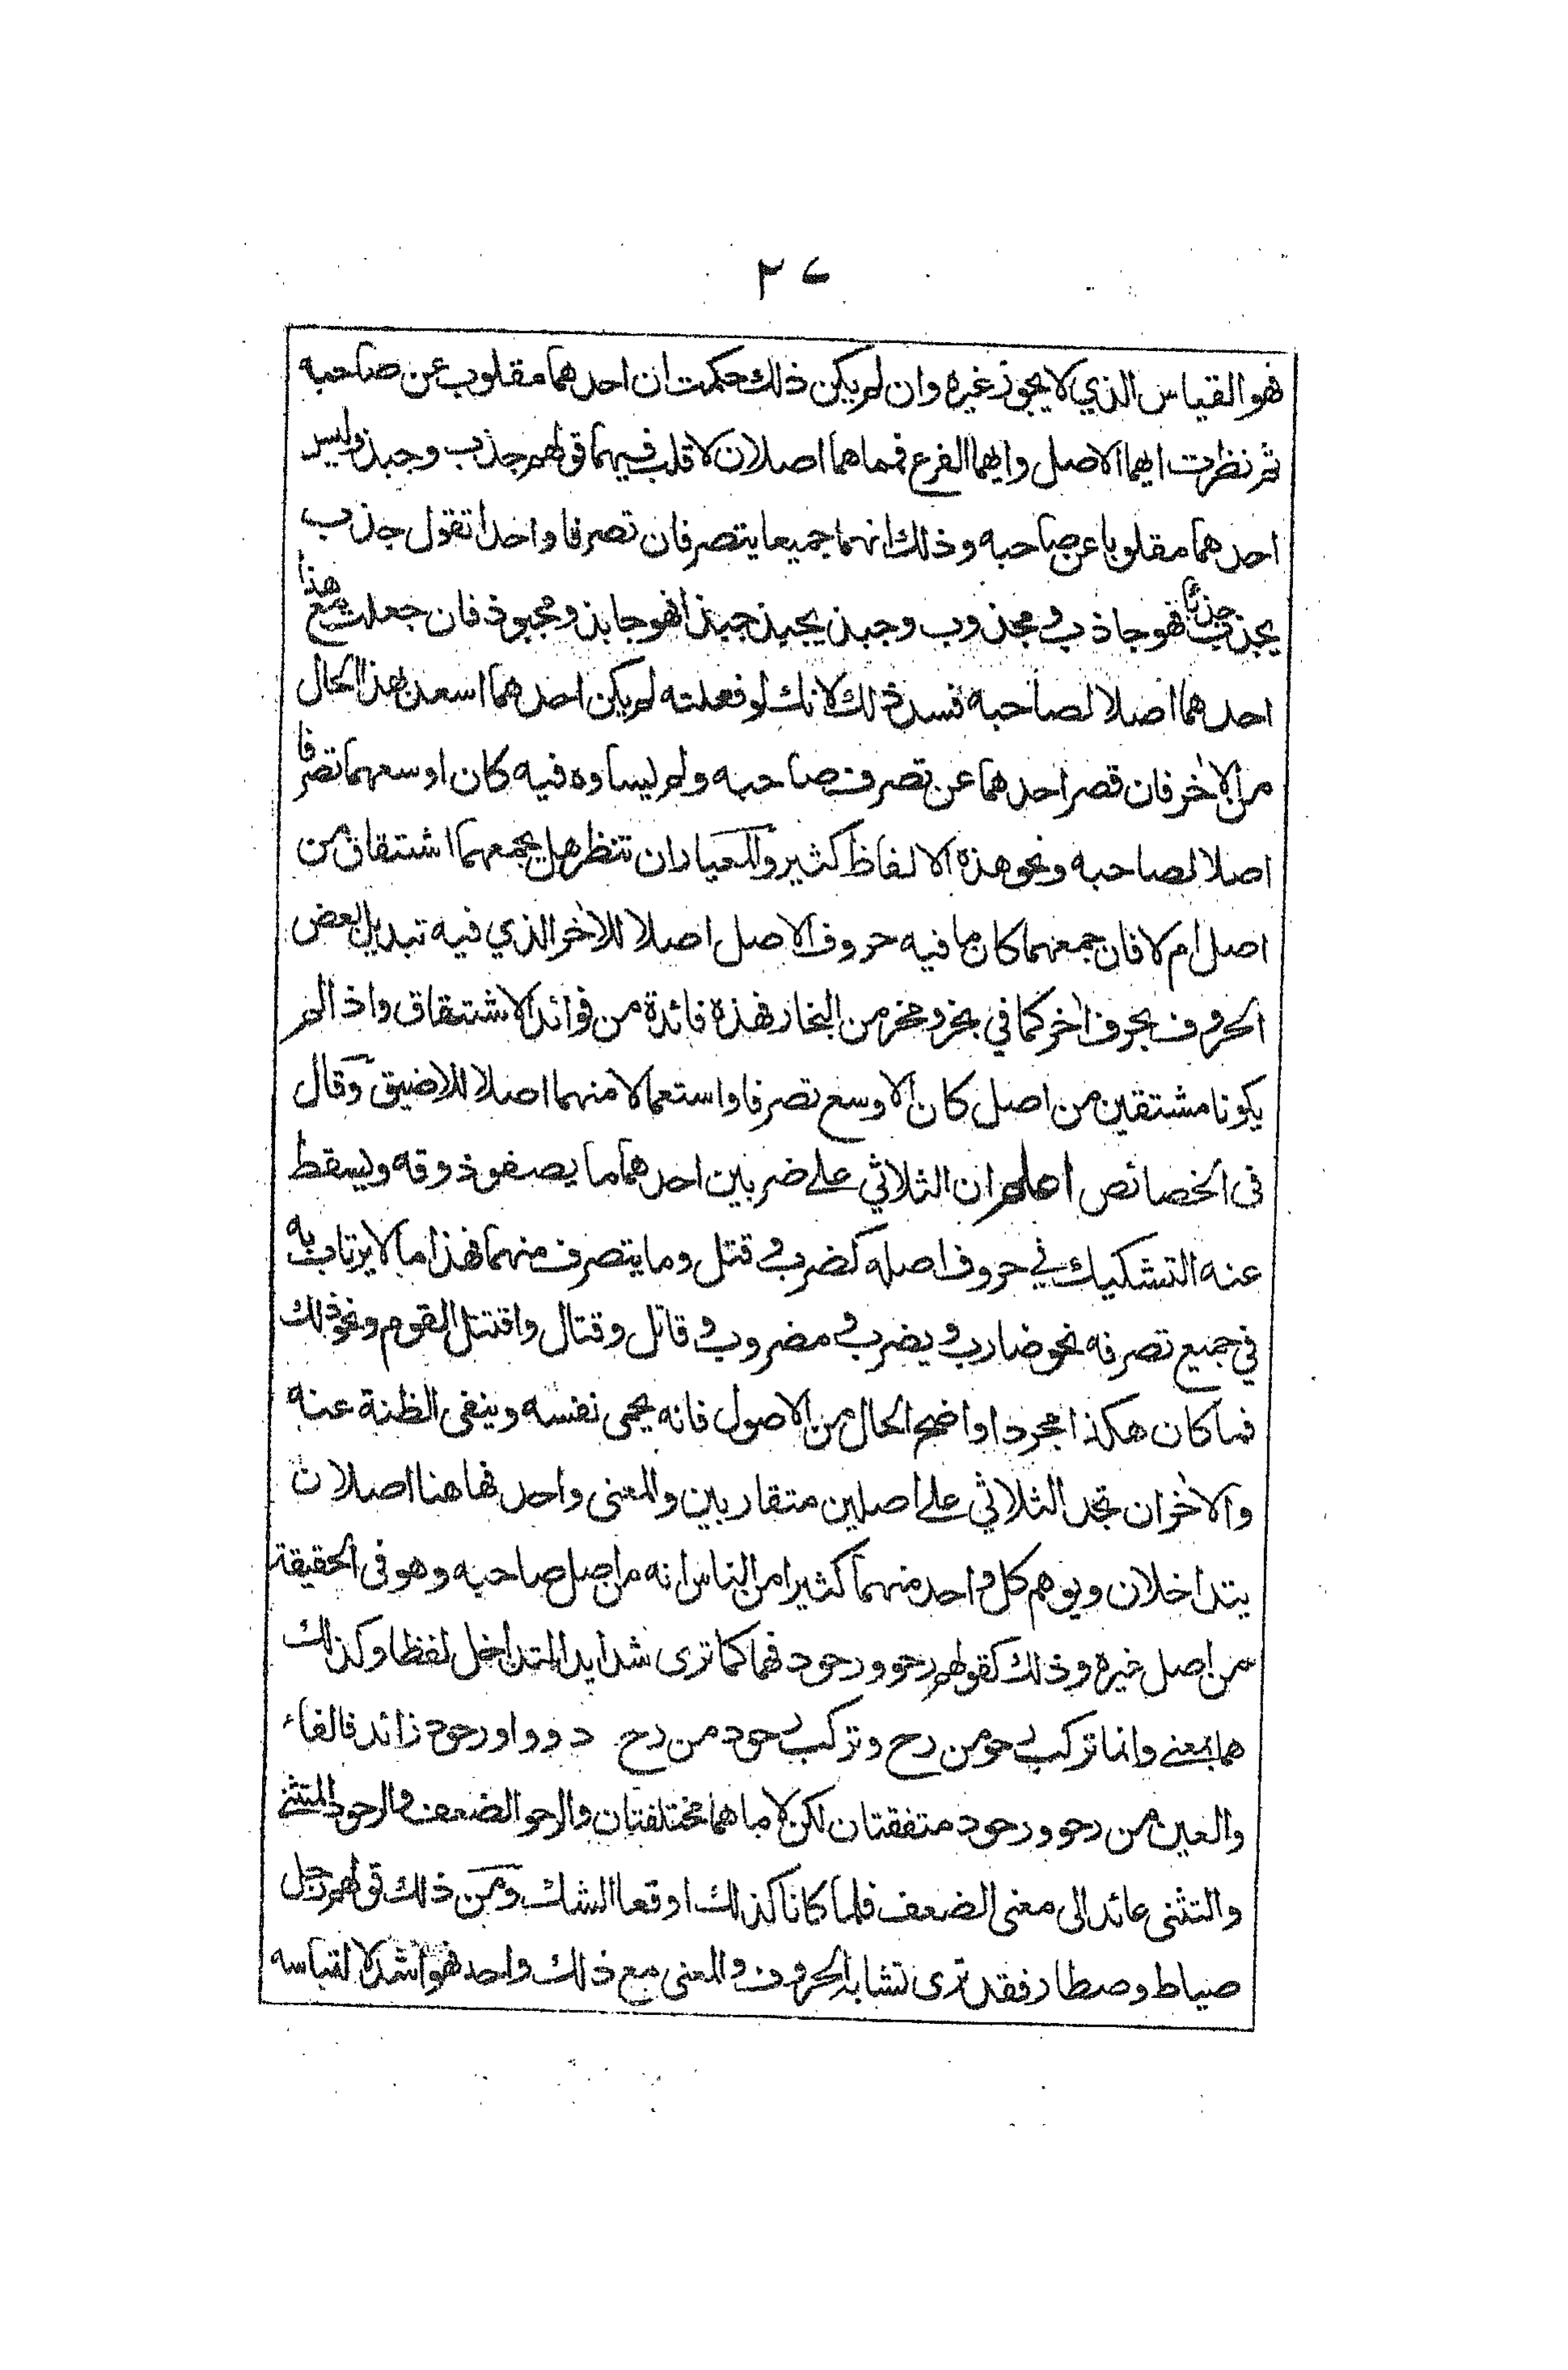 ٢٧
فهو القياس الذي لا يجوز غيره وان لم يكن ذلك حكمت ان احدهما مقلوب عن صاحبه
ثم نظرت ايهما الاصل وايهما الفرع فمما هما اصلان لا قلب فيهما قولهم جذب وجبذ وليس
احدهما مقلوبا عن صاحبه وذلك انهما جميعا يتصرفان تصرفا واحدا تقول جذب
يجذب جذبا فهو جاذب ومجذوب وجبذ يجبذ جبذا فهو جابذ ومجبوذ فان جعلت مع هذا
احدهما اصلا لصاحبه فسد ذلك لانك لو فعلته لم يكن احدهما اسعد بهذا الحال
من الآخر فان قصر احدهما عن تصرف صاحبه ولم يساوه فيه كان اوسعهما تصرفا
اصلا لصاحبه ونحو هذه الالفاظ كثير والمعيار ان تنظر هل يجمعهما اشتقاق من
اصل ام لا فان جمعهما كان ما فيه حروف الاصل اصلا للآخر الذي فيه تبديل بعض
الحروف بحرف آخر كما في بخر ومخر من البخار فهذه فائدة من فوائد الاشتقاق واذا لم
يكونا مشتقين من اصل كان الاوسع تصرفا واستعمالا منهما اصلا للاضيق وقال
في الخصائص اعلم ان الثلاثي على ضربين احدهما ما يصفو ذوقه ويسقط
عنه التشكيك في حروف اصله كضرب وقتل وما يتصرف منهما فهذا ما لا يرتاب به
في جميع تصرفه نحو ضارب ويضرب ومضروب وقاتل وقتال واقتتل القوم ونحو ذلك
فما كان هكذا مجردا واضح الحال من الاصول فانه يحمى نفسه وينفى الظنة عنه
والآخر ان تجد الثلاثي على اصلين متقاربين والمعنى واحد فهاهنا اصلان
يتداخلان ويوهم كل واحد منهما كثيرا من الناس انه من اصل صاحبه وهو في الحقيقة
من اصل غيره وذلك كقولهم رحو ورحود فهما كما ترى شديدا المتداخل لفظا وكذلك
هما بمعنى وانما تركب رحو من رح وتركب رحود من رح د و واو رحود زائد فالفاء
والعين من رحو ورحود متفقتان لكن لاماهما مختلفتان والرحو الضعف والرحود المتثنى
والتثنى عائد الى معنى الضعف فلما كانا كذلك اوقعا الشك ومن ذلك قولهم رجل
ضياط وضيطار فقد ترى تشابه الحروف والمعنى مع ذلك واحد فهو اشد لالتباسه